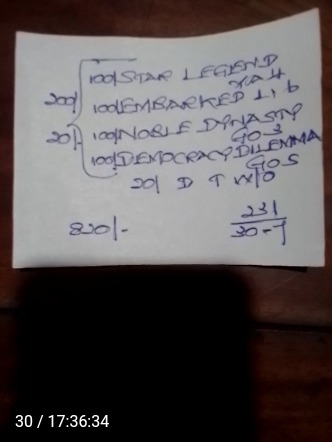 100/ STAR LEGEND
XA4
200/ 100/ EMBARKED L1, 6
20/- 100/ NOBLE DYNASTY
GO3
100/ DEMOCRACY DILEMMA
GO5
20/ D T W/O
820/-
231
30-7
30 / 17:36:34